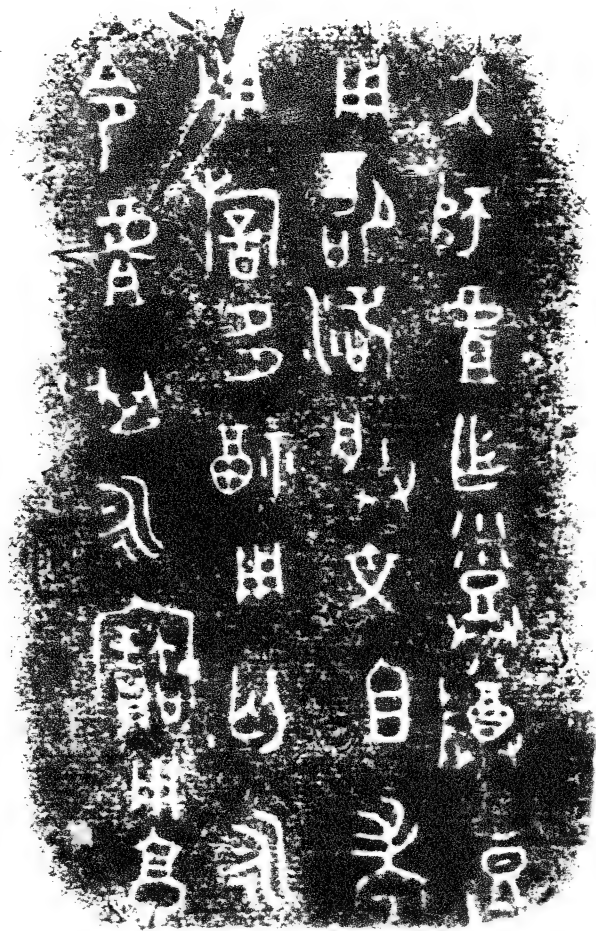 大師虘乍烝尊豆
用卲洛朕文且考
用旂多福用匄永
令虘其永寶用亯